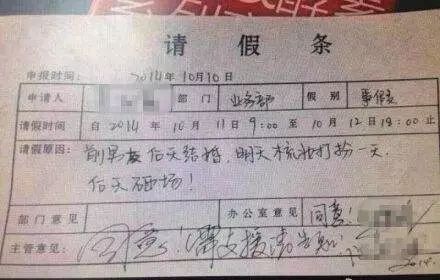 请假条
申报时间： 2014年10月10日
申请人 部门 业务部 假别 事假
请假时间 自2014年10月11日9:00至10月12日18:00止
请假原因： 前男友后天结婚，明天梳妆打扮一天，
后天砸场！
部门意见 办公室意见 同意！
主管意见 同意！需支援请告知！
2014.